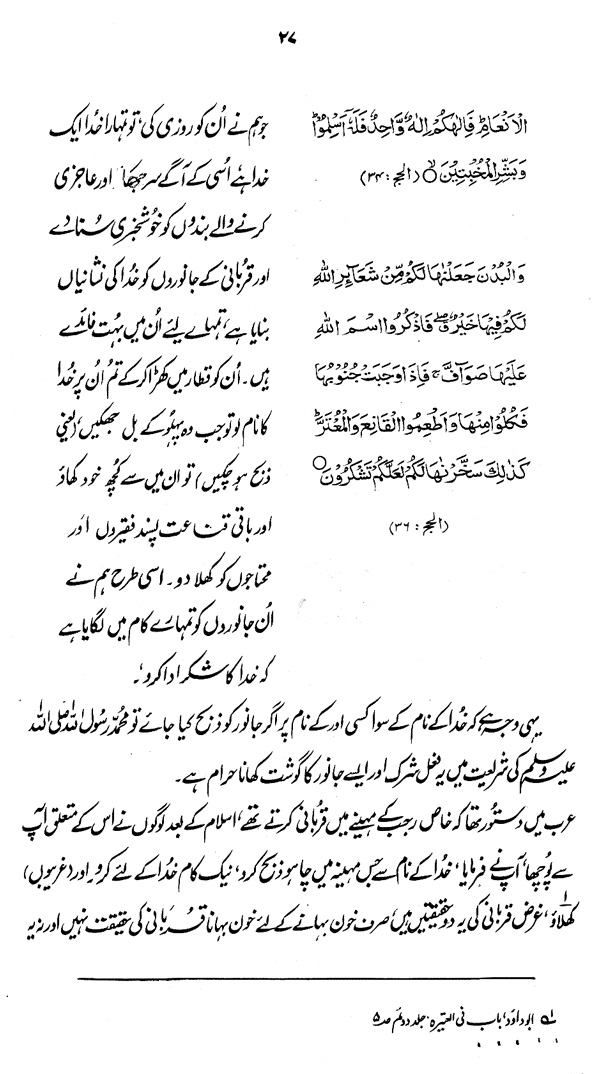 ۲۷
الۡاَنۡعَامِ ؕ فَاِلٰهُكُمۡ اِلٰهٌ وَّاحِدٌ فَلَهٗۤ اَسۡلِمُوۡا ؕ
وَبَشِّرِ الۡمُخۡبِتِيۡنَ ○ (الحج : ۳۴)
وَالۡبُدۡنَ جَعَلۡنٰهَا لَكُمۡ مِّنۡ شَعَآئِرِ اللّٰهِ
لَكُمۡ فِيۡهَا خَيۡرٌ ۖ فَاذۡكُرُوا اسۡمَ اللّٰهِ
عَلَيۡهَا صَوَآفَّ ۚ فَاِذَا وَجَبَتۡ جُنُوۡبُهَا
فَكُلُوۡا مِنۡهَا وَاَطۡعِمُوا الۡقَانِعَ وَالۡمُعۡتَرَّ ؕ
كَذٰلِكَ سَخَّرۡنٰهَا لَكُمۡ لَعَلَّكُمۡ تَشۡكُرُوۡنَ ○
(الحج : ۳۶)
جو ہم نے اُن کو روزی کی، تو تمہارا خُدا ایک
خدا ہے اُسی کے آگے سر جھکا اور عاجزی
کرنے والے بندوں کو خُوشخبری سُنا دے
اور قربانی کے جانوروں کو خُدا کی نشانیاں
بنایا ہے، تمہارے لئے اُن میں بہت فائدے
ہیں۔ اُن کو قطار میں کھڑا کر کے تُم اُن پر خُدا
کا نام لو تو جب وہ پہلُو کے بل جھکیں (یعنی
ذبح ہو چکیں) تو ان میں سے کُچھ خود کھاؤ
اور باقی قناعت پسند فقیروں اور
محتاجوں کو کھلا دو۔ اسی طرح ہم نے
اُن جانوروں کو تمہارے کام میں لگایا ہے
کہ خدا کا شکر ادا کرو‘۔
یہی وجہ ہے کہ خُدا کے نام کے سوا کسی اور کے نام پر اگر جانور کو ذبح کیا جائے تو محمّد رسول اللہ صلی اللہ
علیہ وسلم کی شریعت میں یہ فعل شرک اور ایسے جانور کا گوشت کھانا حرام ہے۔
عرب میں دستُور تھا کہ خاص رجب کے مہینے میں قربانی کرتے تھے، اسلام کے بعد لوگوں نے اس کے متعلق آپ
سے پُوچھا، آپ نے فرمایا، ’خدا کے نام سے جس مہینہ میں چاہو ذبح کرو، نیک کام خُدا کے لئے کرو۔ اور (غریبوں)
کھلاؤ‘،۱ غرض قربانی کی یہ دو حقیقتیں ہیں، صرف خون بہانے کے لئے خون بہانا قربانی کی حقیقت نہیں اور نہ یہ
۱ ابوداؤد، باب فی العتیرہ، جلد دوئم صہ۵